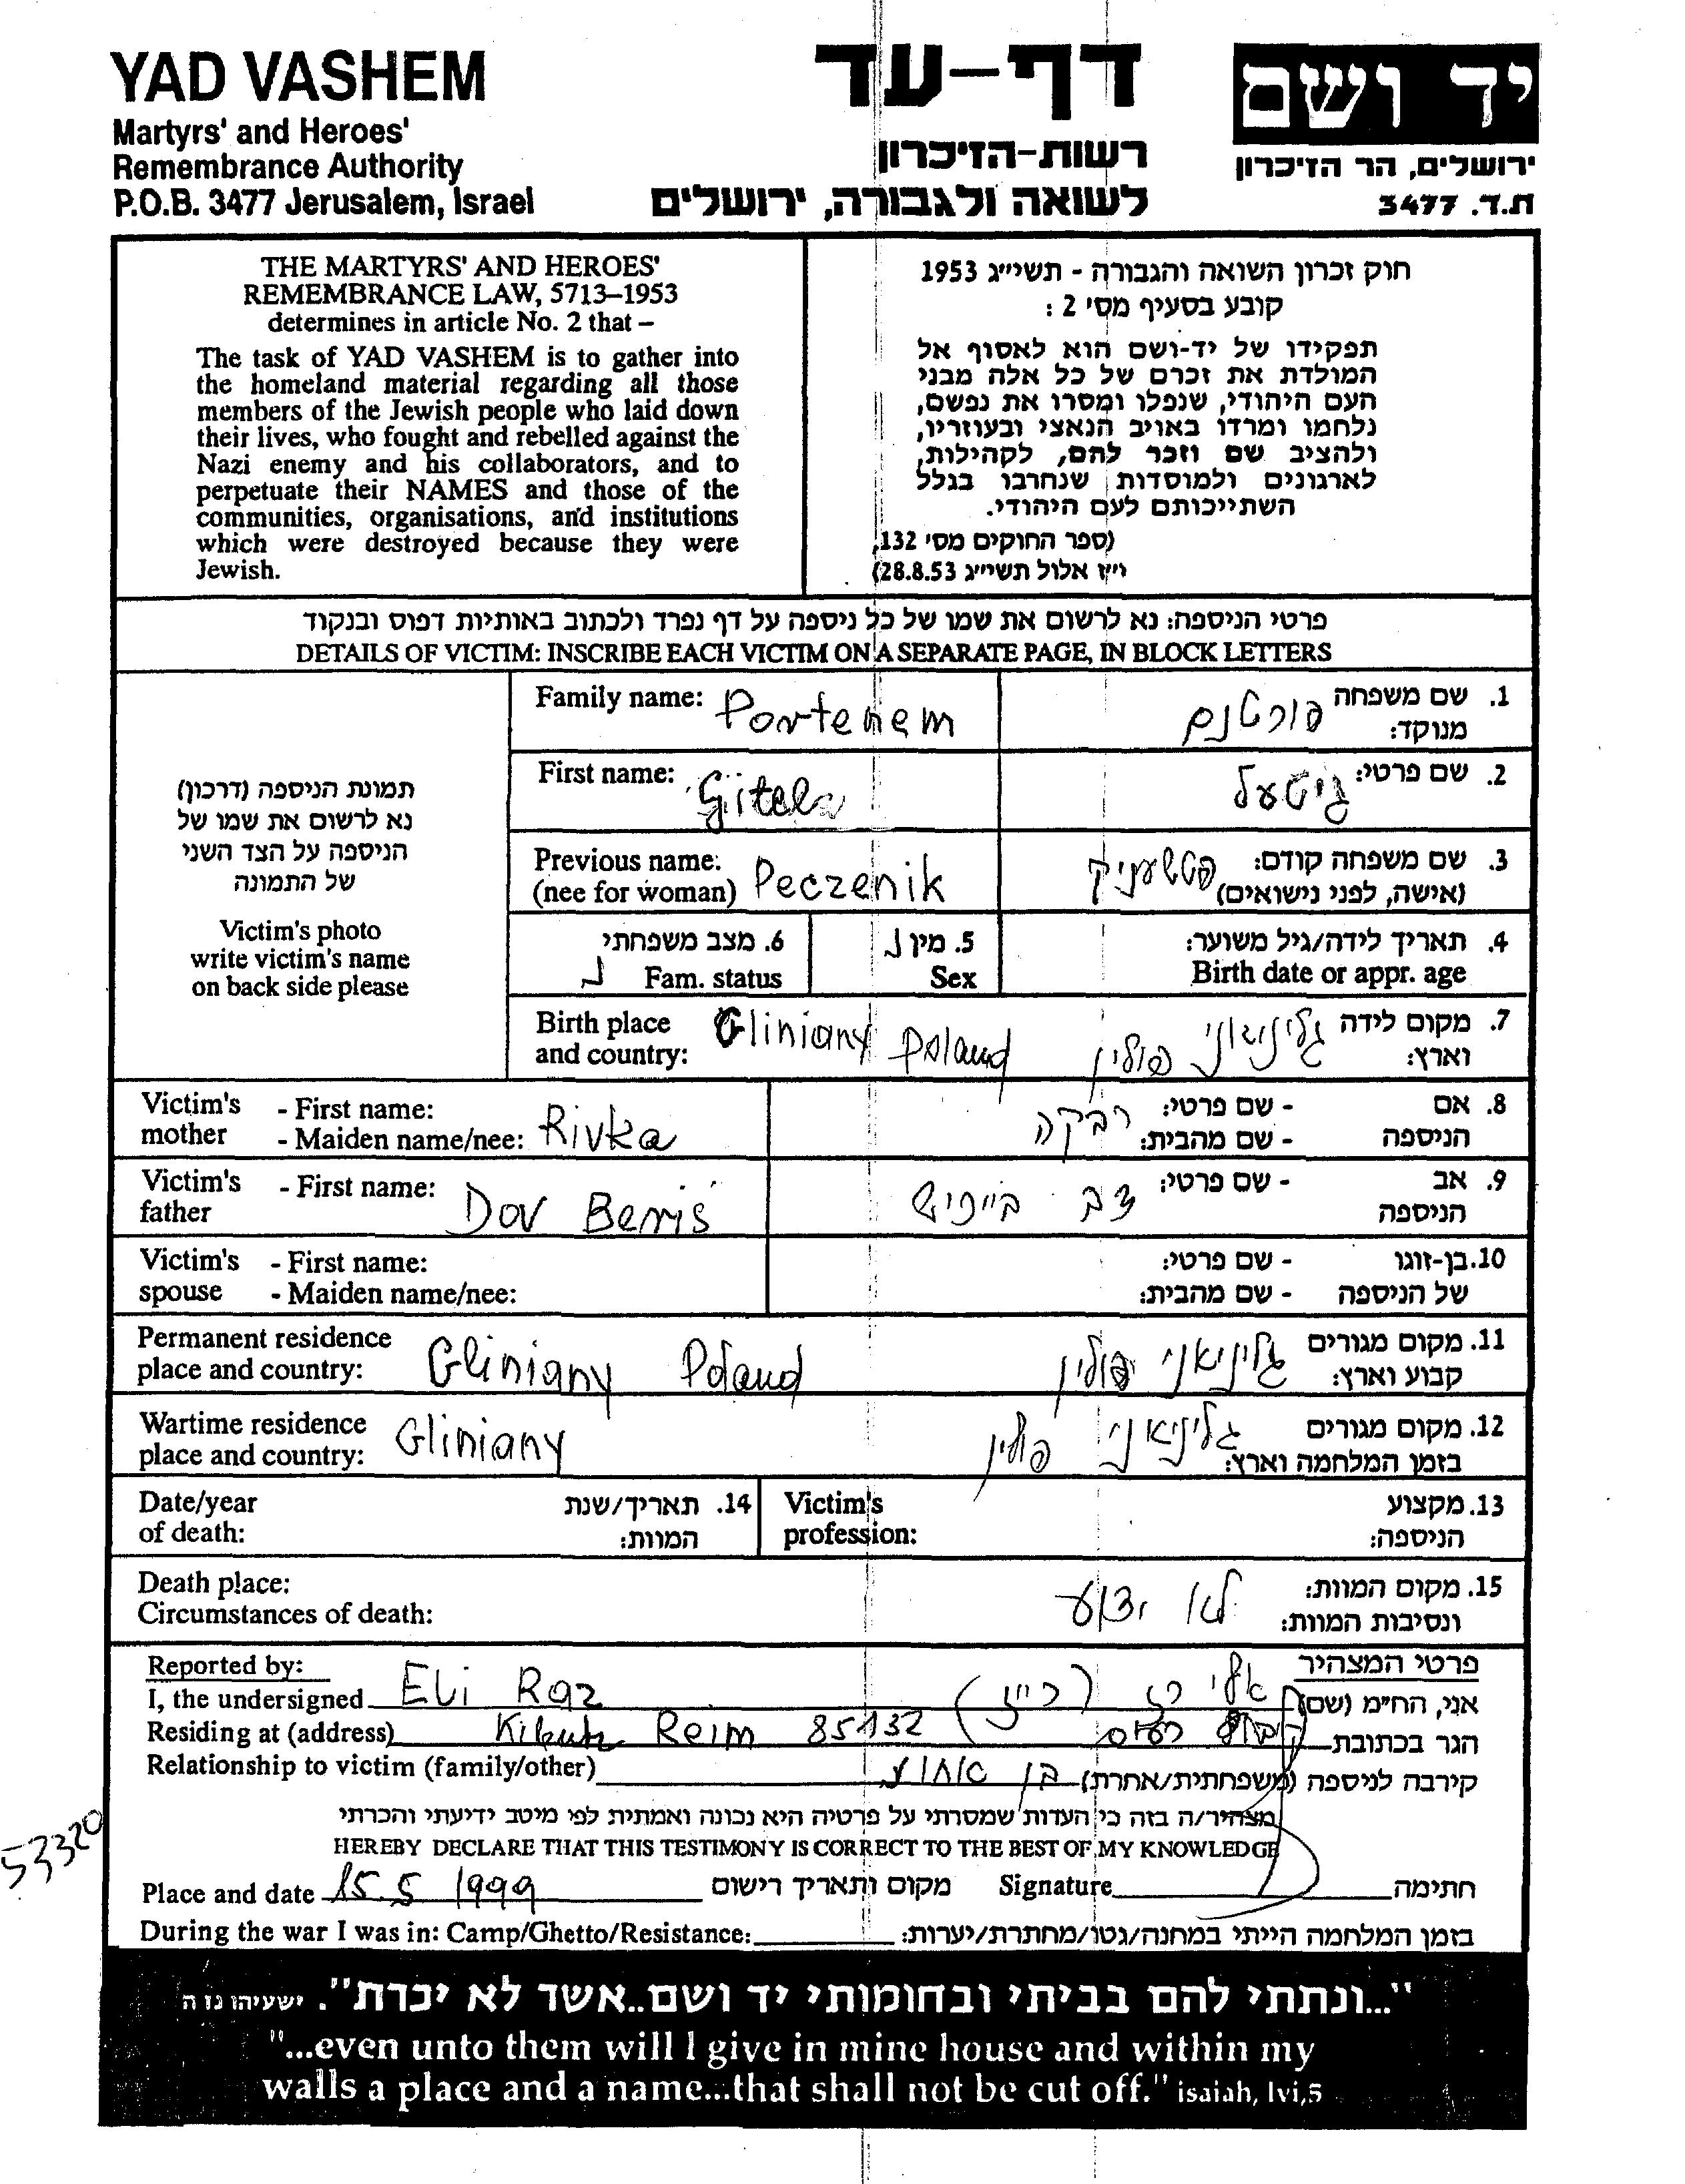 YAD VASHEM
Martyrs' and Heroes'
Remembrance Authority
P.O.B. 3477 Jerusalem, Israel
דף-עד
רשות-הזיכרון
לשואה ולגבורה, ירושלים
יד ושם
ירושלים, הר הזיכרון
ת.ד. 3477
THE MARTYRS' AND HEROES'
REMEMBRANCE LAW, 5713–1953
determines in article No. 2 that –
The task of YAD VASHEM is to gather into
the homeland material regarding all those
members of the Jewish people who laid down
their lives, who fought and rebelled against the
Nazi enemy and his collaborators, and to
perpetuate their NAMES and those of the
communities, organisations, and institutions
which were destroyed because they were
Jewish.
חוק זכרון השואה והגבורה - תשי״ג 1953
קובע בסעיף מס׳ 2 :
תפקידו של יד-ושם הוא לאסוף אל
המולדת את זכרם של כל אלה מבני
העם היהודי, שנפלו ומסרו את נפשם,
נלחמו ומרדו באויב הנאצי ובעוזריו,
ולהציב שם וזכר להם, לקהילות,
לארגונים ולמוסדות שנחרבו בגלל
השתייכותם לעם היהודי.
(ספר החוקים מס׳ 132,
י״ז אלול תשי״ג 28.8.53)
פרטי הניספה: נא לרשום את שמו של כל ניספה על דף נפרד ולכתוב באותיות דפוס ובנקוד
DETAILS OF VICTIM: INSCRIBE EACH VICTIM ON A SEPARATE PAGE, IN BLOCK LETTERS
תמונת הניספה (דרכון)
נא לרשום את שמו של
הניספה על הצד השני
של התמונה
Victim's photo
write victim's name
on back side please
Family name: Portenem
1. שם משפחה מנוקד: פורטנם
First name: Gitela
2. שם פרטי: גיטעל
Previous name: (nee for woman) Peczenik
3. שם משפחה קודם: (אישה, לפני נישואים) פטשעניק
6. מצב משפחתי
Fam. status נ
5. מין נ
Sex
4. תאריך לידה/גיל משוער:
Birth date or appr. age
Birth place and country: Gliniany Poland
7. מקום לידה וארץ: גליניאני פולין
Victim's mother - First name: - Maiden name/nee: Rivka
8. אם הניספה - שם פרטי: - שם מהבית: רבקה
Victim's father - First name: Dov Beris
9. אב הניספה - שם פרטי: דב בייריש
Victim's spouse - First name: - Maiden name/nee:
10. בן-זוגו של הניספה - שם פרטי: - שם מהבית:
Permanent residence place and country: Gliniany Poland
11. מקום מגורים קבוע וארץ: גליניאני פולין
Wartime residence place and country: Gliniany
12. מקום מגורים בזמן המלחמה וארץ: גליניאני פולין
Date/year of death:
14. תאריך/שנת המוות:
Victim's profession:
13. מקצוע הניספה:
Death place:
Circumstances of death:
15. מקום המוות: ונסיבות המוות: לא ידוע
Reported by:
פרטי המצהיר
I, the undersigned Eli Raz
אני, הח״מ (שם) אלי רז (רייז)
Residing at (address) Kibutz Reim 85132
הגר בכתובת קיבוץ רעים
Relationship to victim (family/other)
קירבה לניספה (משפחתית/אחרת) בן אחות
מצהיר/ה בזה כי העדות שמסרתי על פרטיה היא נכונה ואמתית לפי מיטב ידיעתי והכרתי
HEREBY DECLARE THAT THIS TESTIMONY IS CORRECT TO THE BEST OF MY KNOWLEDGE
53320
Place and date 15.5 1999 מקום ותאריך רישום Signature חתימה
During the war I was in: Camp/Ghetto/Resistance: בזמן המלחמה הייתי במחנה/גטו/מחתרת/יערות:
"...ונתתי להם בביתי ובחומותי יד ושם..אשר לא יכרת". ישעיהו נו ה
"...even unto them will I give in mine house and within my
walls a place and a name...that shall not be cut off." isaiah, lvi,5